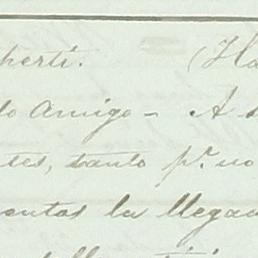 cherti. (Ha
do Amigo - A s
tes, tanto pr. no
entos la llegad